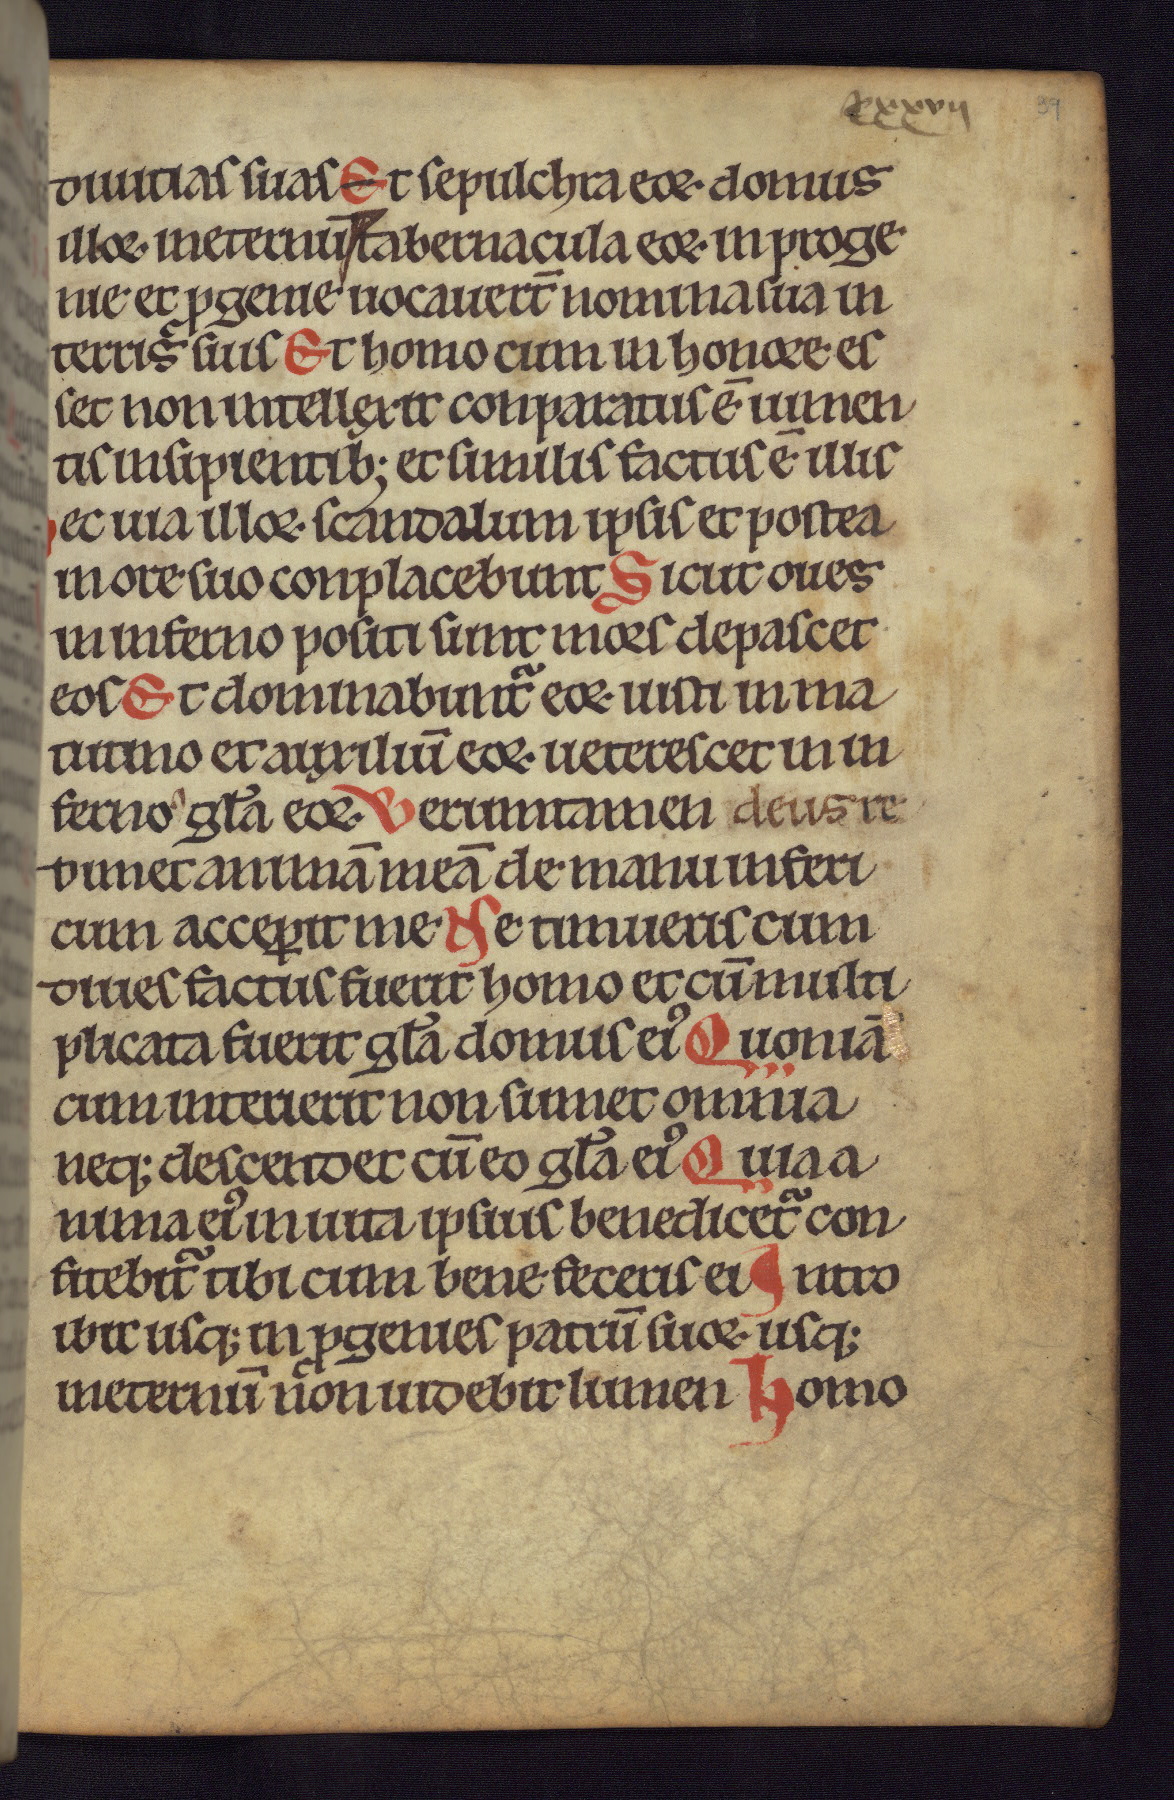 xxxvii 37
diuitias suas Et sepulchra eoꝝ domus
illoꝝ ineternū tabernacula eoꝝ inproge
nie et ꝓgenie uocauert̄ nomina sua in
terris suis Et homo cum in honore es
set non intellexit conparatus ē iumen
tis insipientib; et similis factus ē illis
ec uia illoꝝ scandalum ipsis et postea
in ore suo conplacebunt Sicut oues
in inferno positi sunt mors depascet
eos Et dominabunt᷑ eoꝝ iusti in ma
tutino et auxiliū eoꝝ ueterescet in in
ferno gl̄a eoꝝ Veruntamen deus re
dimet animā meā de manu inferi
cum acceꝑit me Ne timueris cum
diues factus fuerit homo et cū multi
plicata fuerit gl̄a domus eiꝰ Quoniā
cum interierit non sumet omnia
neq; descendet cū eo gl̄a eiꝰ Quia a
nima eiꝰ in uita ipsius benedicet᷑ con
fitebit᷑ tibi cum bene feceris ei Intro
ibit usq; in ꝓgenies patrū suoꝝ usq;
ineternū non uidebit lumen Homo